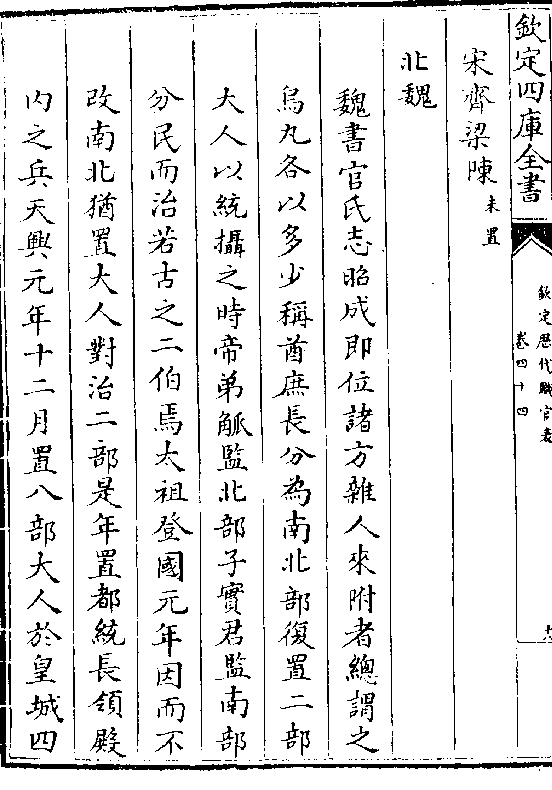 欽定四庫全書
欽定歷代職官表
卷四十四
宋齊梁陳未置
北魏
魏書官氏志昭成即位諸方雜人來附者總謂之
烏丸各以多少稱酋庶長分為南北部復置二部
大人以統攝之時帝弟觚監北部子寔君監南部
分民而治若古之二伯焉太祖登國元年因而不
改南北猶置大人對治二部是年置都統長領殿
內之兵天興元年十二月置八部大人於皇城四